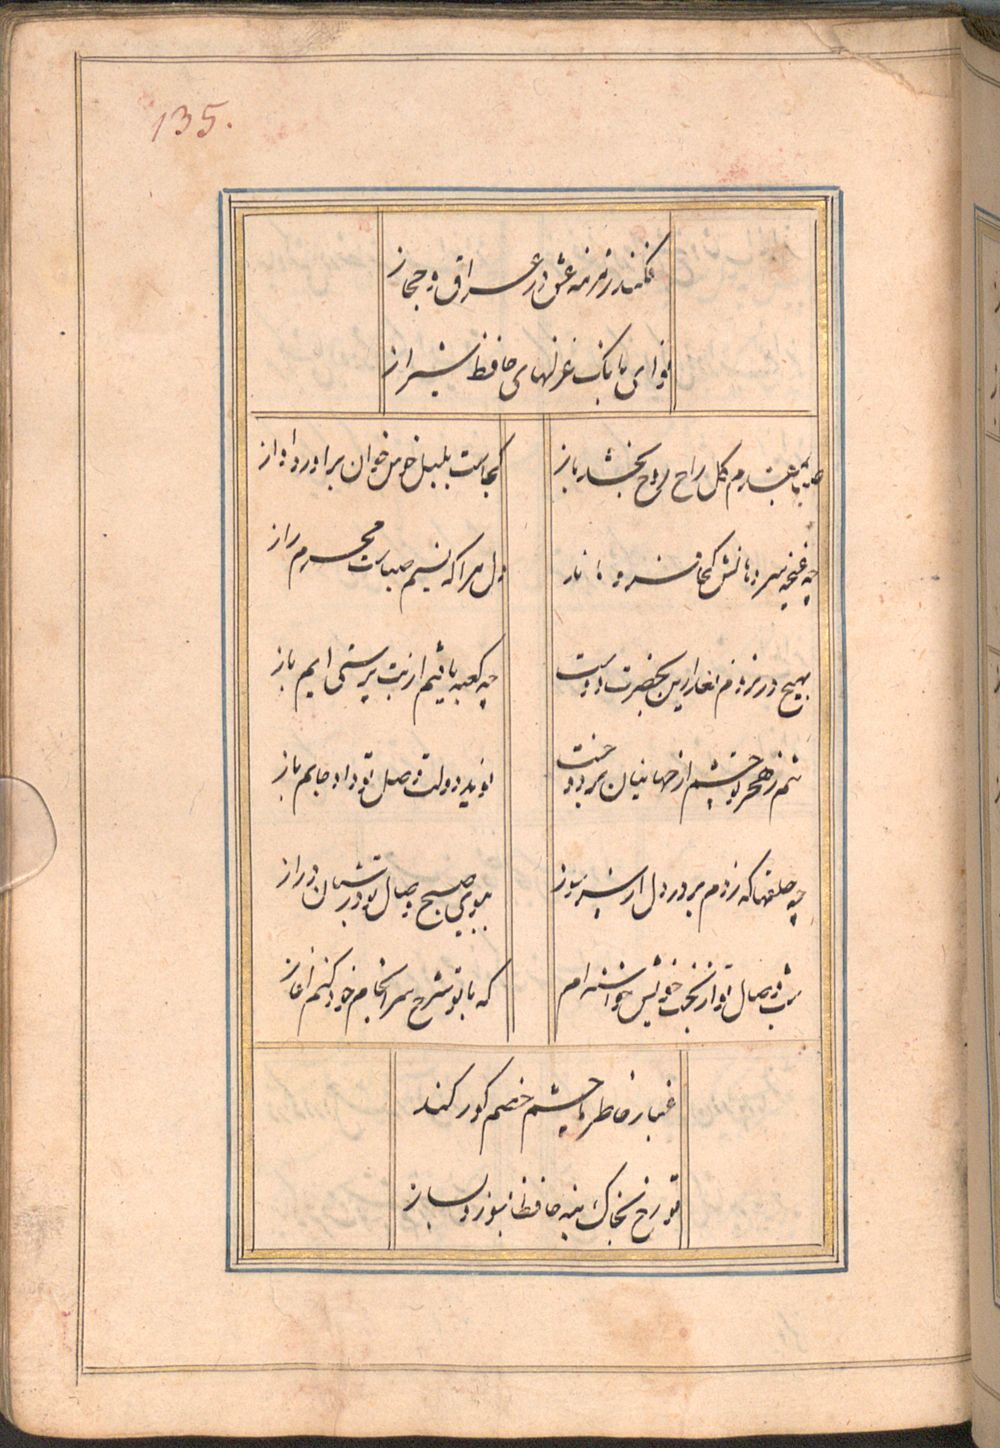 135.
فکند زمزمه عشق در عراق و حجاز
نوای بانک غزلهای حافظ شیراز
گل راح روح بخشد باز
کجاست بلبل خوش خوان برآورد آواز
چه غنچه سر دهانش کجا
دل مرا که نسیم صباست محرم راز
بهیچ در نروم بعد ازین بحضرت دوست
چه کعبه یافتیم از بت پرستی ایم باز
تنم ز هجر تو چشم از جهانیان بردوخت
نوید دولت وصل تو داد جانم باز
چه حلقها که زدم بر در دل از سر سوز
ببوی صبح وصال تو در شبان دراز
شب وصال تو از بخت خویش خواسته ام
که با تو شرح سرانجام خود کنم آغاز
غبار خاطر ما چشم خصم کور کند
تو رخ بخاک بنه حافظا بسوز و بساز